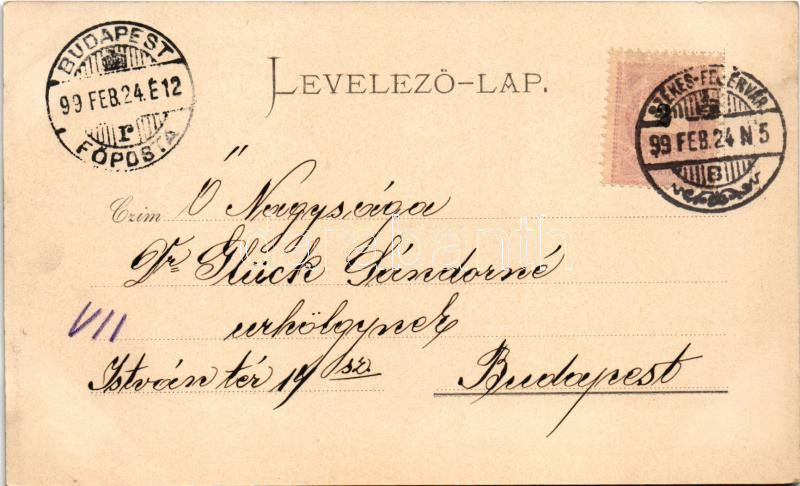 BUDAPEST
99 FEB. 24. É 12
r
FŐPOSTA
LEVELEZŐ-LAP.
2
SZÉKES-FEHÉRVÁR
99 FEB. 24 N 5
B
Czim Ő Nagysága
Dr Glück Sándorné
urhölgynek
VII
István tér 14 sz.
Budapest
darabanth